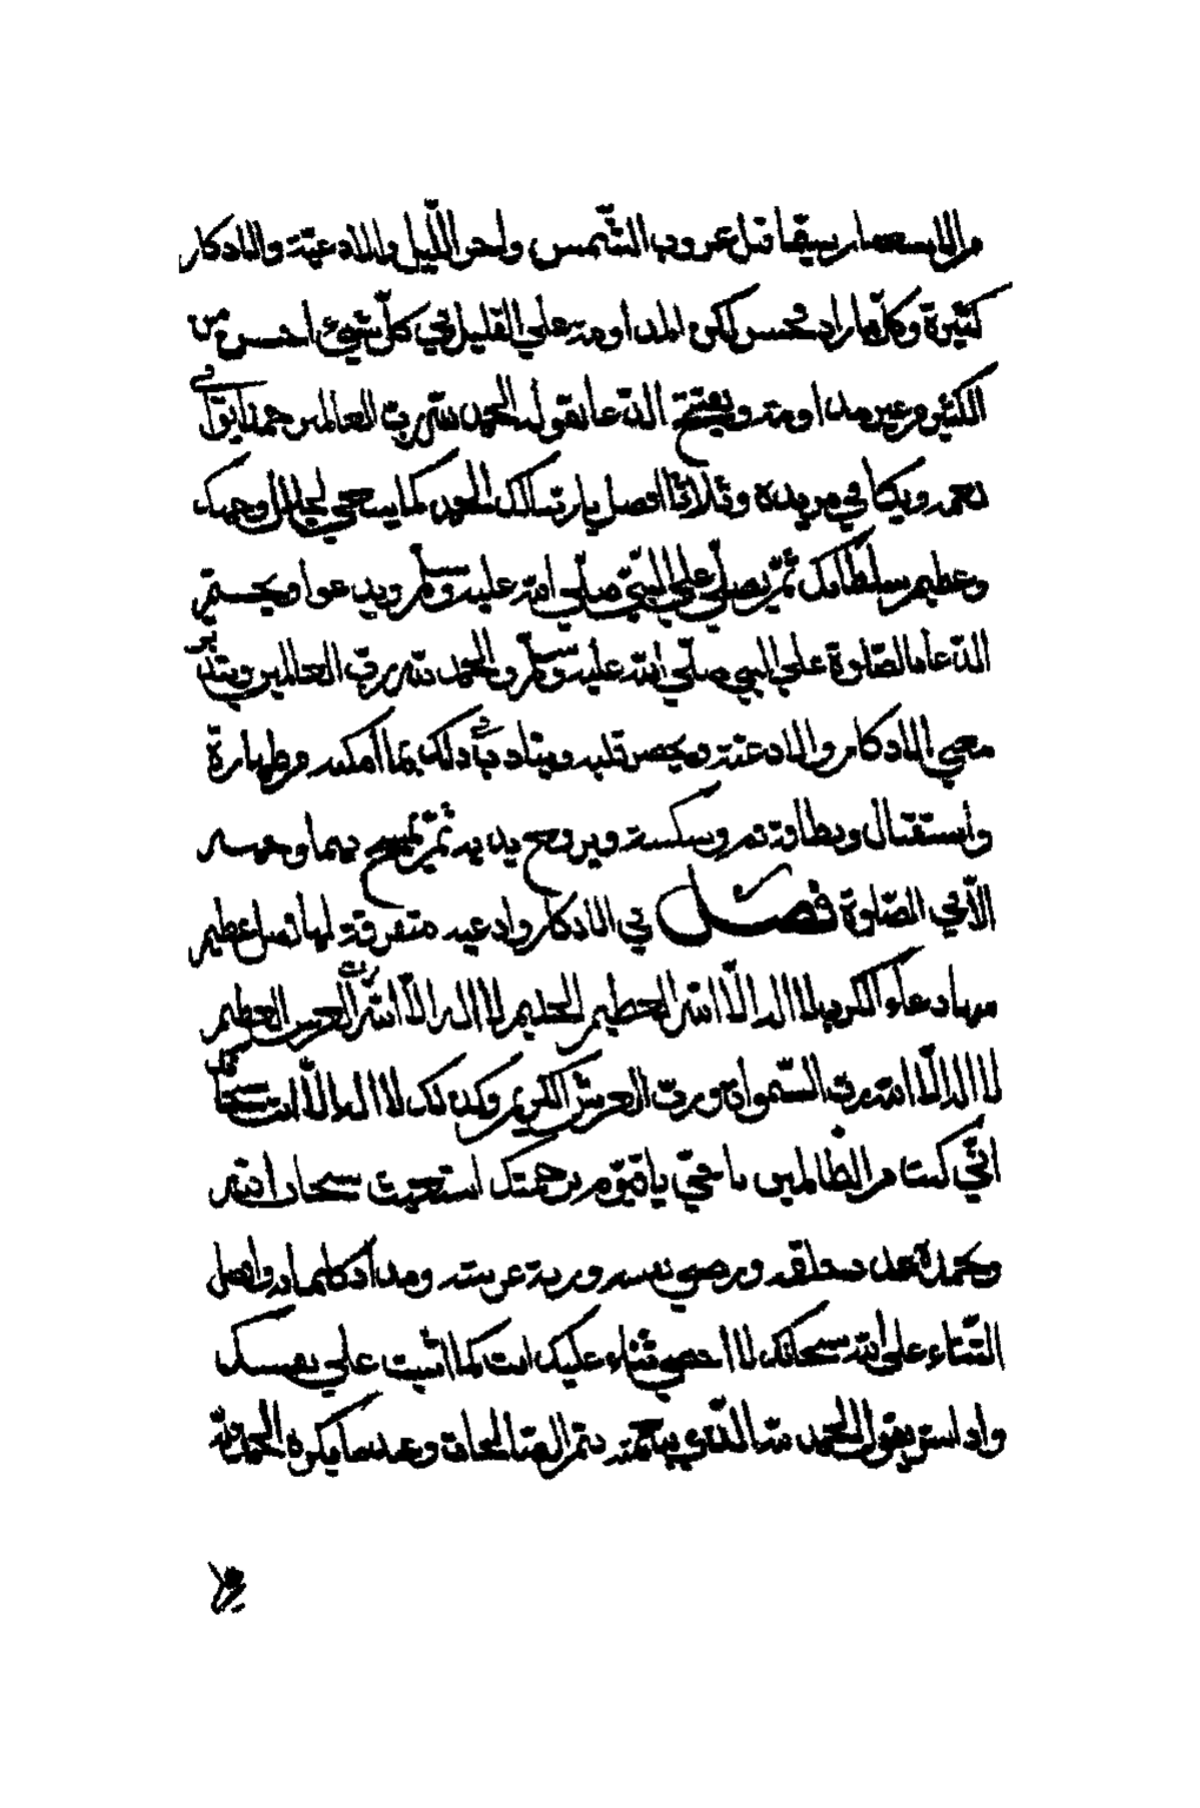 من الاستغفار سيما قبل غروب الشمس واخر الليل والادعية والاذكار
كثيرة وكل ما زاد حسن لكن المداومة علي القليل في كل شيء احسن من
الكثير من غير مداومة ويفتتح الدعا بقول الحمد لله رب العالمين حمدا يوافي
نعمه ويكافي مزيده وثلاثا افضل يا ربنا لك الحمد كما ينبغي لجلال وجهك
وعظيم سلطانك ثم يصلي علي النبي صلي الله عليه وسلم ويدعوا ويختم
الدعا بالصلوة علي النبي صلي الله عليه وسلم والحمد لله رب العالمين ويتدبر
معني الاذكار والادعية ويحضر قلبه ويتادب في ذلك بما امكنه من طهارة
واستقبال ونظافة فم وسكينة ويرفع يديه ثم يمسح بهما وجهه
الا في الصلوة فصل في الاذكار وادعية متفرقة لها فضل عظيم
منها دعاء الكرب لا اله الا الله العظيم الحليم لا اله الا الله رب العرش العظيم
لا اله الا الله رب السموات ورب العرش الكريم وكذلك لا اله الا انت سبحانك
اني كنت من الظالمين يا حي يا قيوم برحمتك استغيث سبحان الله
وبحمده عدد خلقه ورضي نفسه وزنة عرشه ومداد كلماته وافضل
الثناء علي الله سبحانك لا احصي ثناء عليك انت كما اثنيت علي نفسك
واذا سر يقول الحمد لله الذي بنعمته تتم الصالحات وعند ما يكره الحمد لله